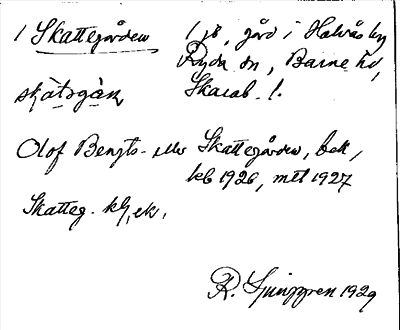 1 Skattegården 1 jb, gård i Halvås by
Ryda sn, Barne hd,
Skarab. l.
Olof Bengts- eller Skattegården, bok,
keb 1926, mtl 1927
Skatteg. kb, ek,
R. Ljunggren 1929